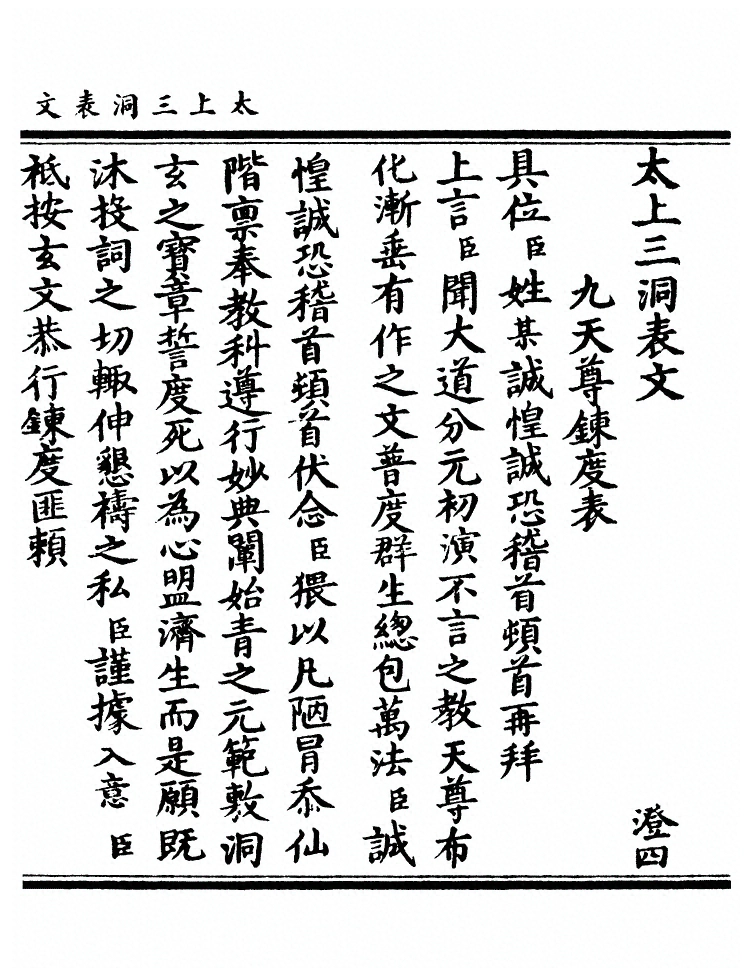 太上三洞表文
太上三洞表文 澄四
九天尊鍊度表
具位臣姓某誠惶誠恐稽首頓首再拜
上言臣聞大道分元初演不言之教天尊布
化漸垂有作之文普度群生緫包萬法臣誠
惶誠恐稽首頓首伏念臣猥以凡陋冐忝仙
階禀奉教科遵行妙典闡始青之元範敷洞
玄之寶章誓度死以為心盟濟生而是願既
沐投詞之切輙伸懇禱之私臣謹據入意臣
祗按玄文恭行鍊度匪賴